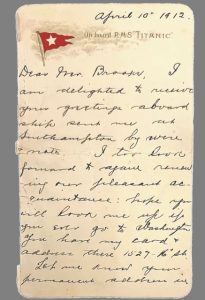 April 10th 1912.
On board R.M.S. "TITANIC"
Dear Mrs. Brooks, I
am delighted to receive
your greetings aboard
ship sent me at
Southampton by wire
& note. I too look
forward to again renew
ing our pleasant ac-
quaintance: hope you
will look me up if
you ever go to Washington
You have my card &
address there 1527-16 St.
Let me know your
permanent address in